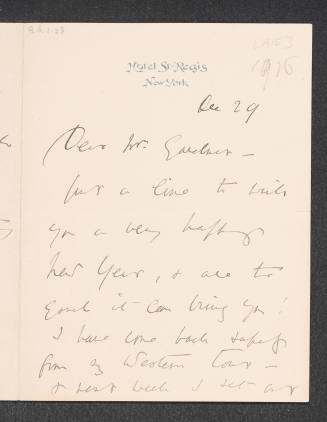 Hotel St. Regis
New York
1916
Dec 29
Dear Mr. Gardner –
Just a line to wish
you a very happy
New Year, & all the
good it can bring you!
I have come back safely
from my Western tour –
& next week I set out